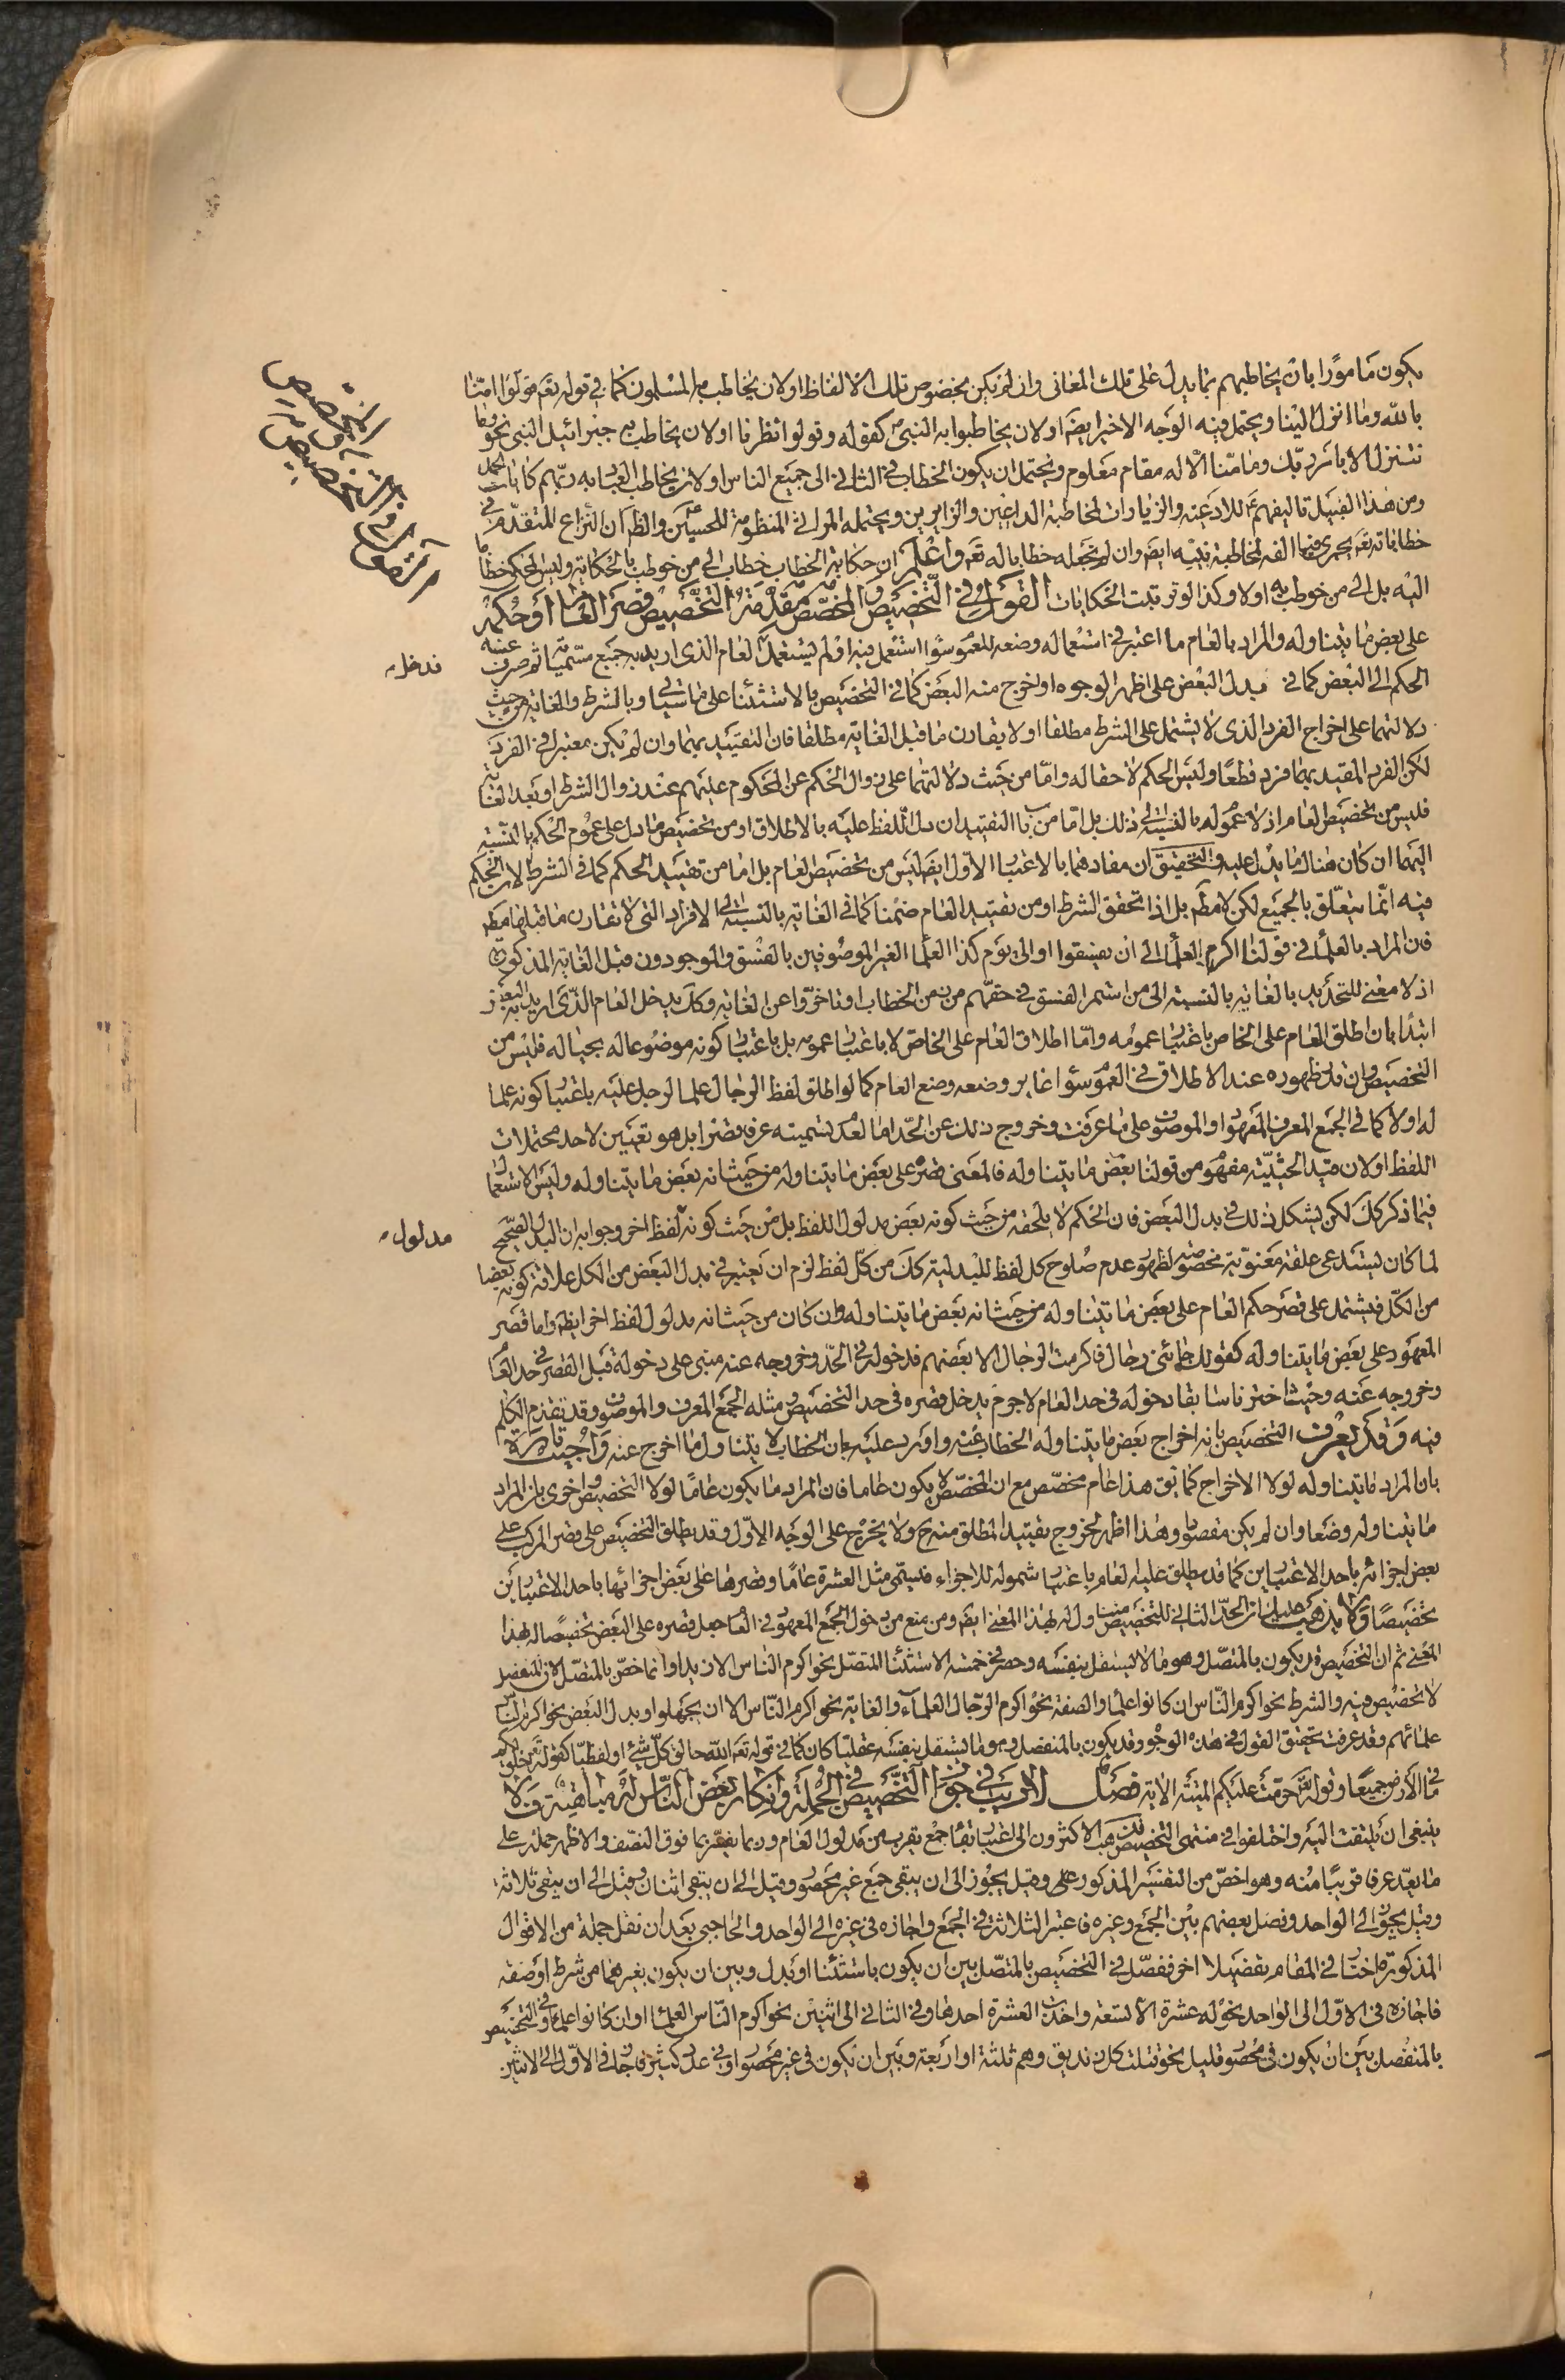 يكون مامورا بان يخاطبهم بما يدل على تلك المعانى وان لم يكن بخصوص تلك الالفاظ او لان يخاطب به المسلمون كما فى قوله تعم قولوا امنا
بالله وما انزل الينا ويحتمل فيه الوجه الاخير ايضم او لان يخاطبوا به النبى ص كقوله وقولوا انظرنا او لان يخاطب به جبرائيل النبى نحو وما
نتنزل الا بامر ربك وما منا الا له مقام معلوم ويحتمل ان يكون الخطاب فى الثانى الى جميع الناس او لان يخاطب العباد به ربهم كايات الحمل
ومن هذا القبيل تاليفهم ع للادعية والزيارات لمخاطبة الداعين والزايرين ويحتمله المراثى المنظومة للحسين ع والظم ان النزاع المتقدم فى
خطاباته تعم يجرى فيما الفه لمخاطبة نبيه ايضم وان لم نجعله خطابا له تعم واعلم ان حكاية الخطاب خطاب الى من خوطب بالحكاية وليس المحكى خطابا
اليه بل الى من خوطب به اولا وكذا لو ترتبت الحكايات القول فى التخصيص والمخصص مقدمة التخصيص قصر العام او حكمه
على بعض ما يتناوله والمراد بالعام ما اعتبر فى استعماله وضعه للعموم سواء استعمل فيه او لم يستعمل كالعام الذى اريد به جميع مسمياته ثم صرف عنه
الحكم الى البعض كما فى بدل البعض على اظهر الوجوه او اخرج منه البعض كما فى التخصيص بالاستثناء على ما سياتى وبالشرط والغاية من حيث
دلالتهما على اخراج الفرد الذى لا يشتمل على الشرط مطلقا او لا يقارن ما قبل الغاية مطلقا فان التقييد بهما وان لم يكن معتبرا فى الفرد
لكن الفرد المقيد بهما فرد قطعا وليس الحكم لاحقا له واما من حيث دلالتهما على زوال الحكم عن المحكوم عليهم عند زوال الشرط او بعد الغاية
فليس من تخصيص العام اذ لا عموم له بالنسبة الى ذلك بل اما من باب التقييد ان دل اللفظ عليه بالاطلاق او من تخصيص ما دل على عموم الحكم بالنسبة
اليهما ان كان هناك ما يدل عليه والتحقيق ان مفادهما بالاعتبار الاول ايضم ليس من تخصيص العام بل اما من تقييد الحكم كما فى الشرط لان الحكم
فيه انما يتعلق بالجميع لكن لا مطم بل اذا تحقق الشرط او من تقييد العام ضمنا كما فى الغاية بالنسبة الى الافراد التى لا تقارن ما قبلها مطم
فان المراد بالعلماء فى قولنا اكرم العلماء الى ان يفسقوا او الى يوم كذا العلماء الغير الموصوفين بالفسق والموجودون قبل الغاية المذكورة
اذ لا معنى للتحديد بالغاية بالنسبة الى من استمر الفسق فى حقهم من زمن الخطاب او تاخروا عن الغاية وكذا يدخل العام الذى اريد به البعض
ابتداء بان اطلق العام على الخاص باعتبار عمومه واما اطلاق العام على الخاص لا باعتبار عمومه بل باعتبار كونه موضوعا له بحياله فليس من
التخصيص وان قدر ظهوره عند الاطلاق فى العموم سواء غاير وضعه وضع العام كما لو اطلق لفظ الرجال علما لرجل عليه باعتبار كونه علما
له اولا كما فى الجمع المعرف المعهود او الموصوف على ما عرفت وخروج ذلك عن الحد اما لعدم تسميته عرفا قصرا بل هو تعيين لاحد محتملات
اللفظ او لان قيد الحيثية مفهوم من قولنا بعض ما يتناوله فالمعنى قصره على بعض ما يتناوله من حيث انه بعض ما يتناوله وليس الاستعمال
فيما ذكر كك لكن يشكل ذلك فى بدل البعض فان الحكم لا يلحقه من حيث كونه بعض مدلول اللفظ بل من حيث كونه لفظ اخر وجوابه ان البدل الصحيح
لما كان يستدعى علقة معنوية مخصوصة لظهور عدم صلوح كل لفظ للبدلية كك من كل لفظ لزم ان يعتبر فى بدل البعض من الكل علاقة كونه بعضا
من الكل فيشتمل على قصر حكم العام على بعض ما يتناوله من حيث انه بعض ما يتناوله وان كان من حيث انه مدلول لفظ اخر ايضم واما قصر
المعهود على بعض ما يتناوله كقولك جائنى رجال فاكرمت الرجال الا بعضهم فدخوله فى الحد وخروجه عنه مبنى على دخوله قبل القصر فى حد العام
وخروجه عنه وحيث اخترنا سابقا دخوله فى حد العام لا جرم يدخل قصره فى حد التخصيص ومثله الجمع المعرف والموصوف وقد تقدم الكلام
فيه وقد يعرف التخصيص بانه اخراج بعض ما يتناوله الخطاب عنه واورد عليه بان الخطاب لا يتناول ما اخرج عنه واجيب تارة
بان المراد ما يتناوله لولا الاخراج كما يق هذا عام مخصص مع ان المخصص لا يكون عاما فان المراد ما يكون عاما لولا التخصيص واخرى بان المراد
ما يتناوله وضعا وان لم يكن مقصودا وهذا اظهر لخروج تقييد المطلق منه ح ولا يخرج على الوجه الاول وقد يطلق التخصيص على قصر المركب على
بعض اجزائه باحد الاعتبارين كما قد يطلق عليه العام باعتبار شموله للاجزاء فيسمى مثل العشرة عاما وقصرها على بعض اجزائها باحد الاعتبارين
تخصيصا ولا يذهب عليك ان الحد الثانى للتخصيص متناول له بهذا المعنى ايضم ومن منع من دخول الجمع المعهود فى العام جعل قصره على البعض تخصيصا له بهذا
المعنى ثم ان التخصيص قد يكون بالمتصل وهو ما لا يستقل بنفسه وحصر فى خمسة الاستثناء المتصل نحو اكرم الناس الا زيدا وانما خص بالمتصل لان المنفصل
لا تخصيص فيه والشرط نحو اكرم الناس ان كانوا علماء والصفة نحو اكرم الرجال العلماء والغاية نحو اكرم الناس الا ان يجهلوا وبدل البعض نحو اكرم الناس
علمائهم وقد عرفت تحقيق القول فى هذه الوجوه وقد يكون بالمنفصل وهو ما يستقل بنفسه عقليا كان كما فى قوله تعم الله خالق كل شئ او لفظيا كقوله تعم خلق لكم
ما فى الارض جميعا وقوله تعم حرمت عليكم الميتة الاية فصل لا ريب فى جواز التخصيص فى الجملة وانكار بعض الناس له مباهتة ولا
ينبغى ان يلتفت اليه واختلفوا فى منتهى التخصيص فذهب الاكثرون الى اعتبار بقاء جمع يقرب من مدلول العام وربما يفسر بما فوق النصف والاظهر حمله على
ما يعد عرفا قريبا منه وهو اخص من التفسير المذكور وقيل يجوز الى ان يبقى جمع غير محصور وقيل الى ان يبقى اثنان وقيل الى ان يبقى ثلاثة
وقيل يجوز الى الواحد وفصل بعضهم بين الجمع وغيره فاعتبر الثلاثة فى الجمع واجازه فى غيره الى الواحد والحاجبى بعد ان نقل جملة من الاقوال
المذكورة اختار فى المقام تفصيلا اخر ففصل فى التخصيص بالمتصل بين ان يكون باستثناء او بدل وبين ان يكون بغيرهما من شرط او صفة
فاجازه فى الاول الى الواحد نحو له عشرة الا تسعة واخذت العشرة احدها وفى الثانى الى اثنين نحو اكرم الناس العلماء او ان كانوا علماء وفى التخصيص
بالمنفصل بين ان يكون فى محصور قليل نحو قتلت كل زنديق وهم ثلثة او اربعة وبين ان يكون فى غير محصور او فى عدد كثير فاجاز فى الاول الى الاثنين
فدخل
مدلول